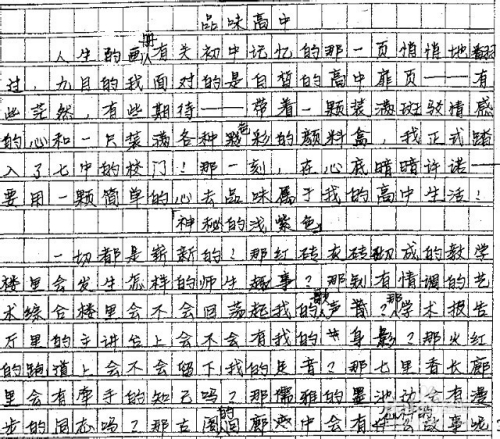 品味高中
人生的画册有关初中记忆的那一页悄悄地翻
过，九月的我面对的是白皙的高中扉页——有
些茫然，有些期待——带着一颗装满斑驳情感
的心和一只装满各种色彩的颜料盒，我正式踏
入了七中的校门！那一刻，在心底暗暗许诺——
要用一颗简单的心去品味属于我的高中生活！
「神秘的浅紫色」
一切都是崭新的！那红砖灰砖砌成的教学
楼里会发生怎样的师生趣事？那别有情调的艺
术综合楼里会不会回荡起我的歌声？那学术报告
厅里的主讲台上会不会有我的身影？那火红
的跑道上会不会留下我的足音？那七里香长廊
里会有牵手的知己吗？那儒雅的墨池边会有漫
步的同志吗？那古围的廊中会有故事呢